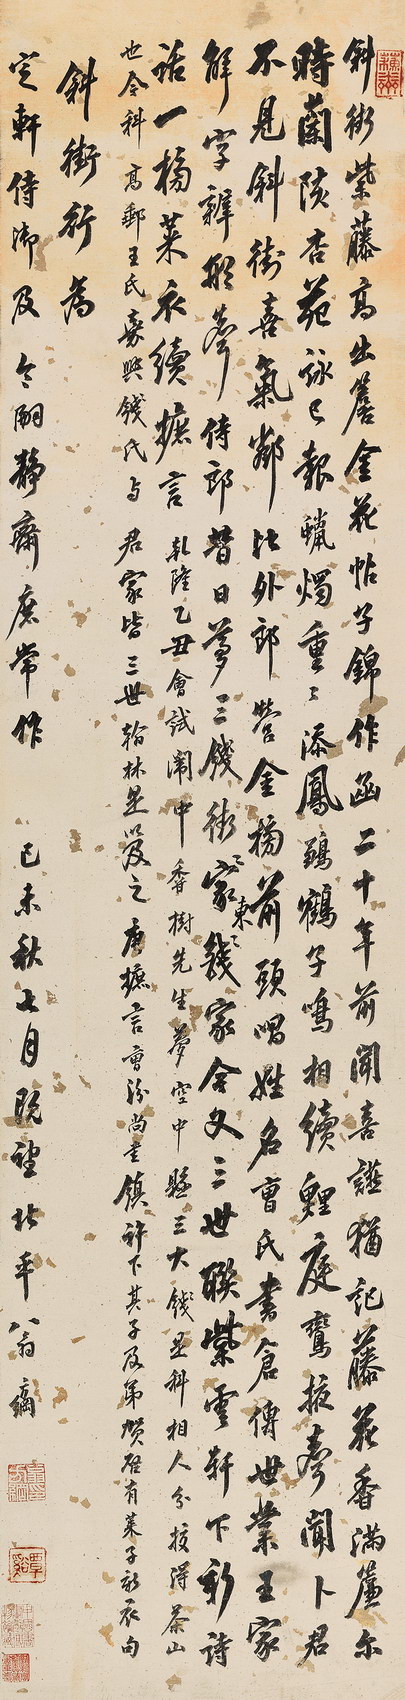 斜街紫藤高出簷金花帖子錦作函二十年前聞喜讌猶記藤花香滿簾爾
時蘭陔杏苑詠已報蠟燭重重添鳳鷄鶴子鳴相續鯉庭鸞掖奉聞卜君
不見斜街喜氣鄰比外郎營金榜前頭唱姓名曹氏書倉傳世業王家
解字雜形聲侍郎昔日夢三錢街東家家錢家合又三世聯紫雲軒下新詩
話一榜萊衣續摭言乾隆乙丑會試闈中香樹先生夢空中懸三大錢是科相人分校得茶山
也今科高郵王氏嘉興錢氏与君家皆三世翰林是以及之唐摭言曹汾尚書鎮許下其子及弟賀啓有萊子新衣句
斜街行為
定軒侍御及令嗣靜齋庶常作 己未秋七月既望北平八翁